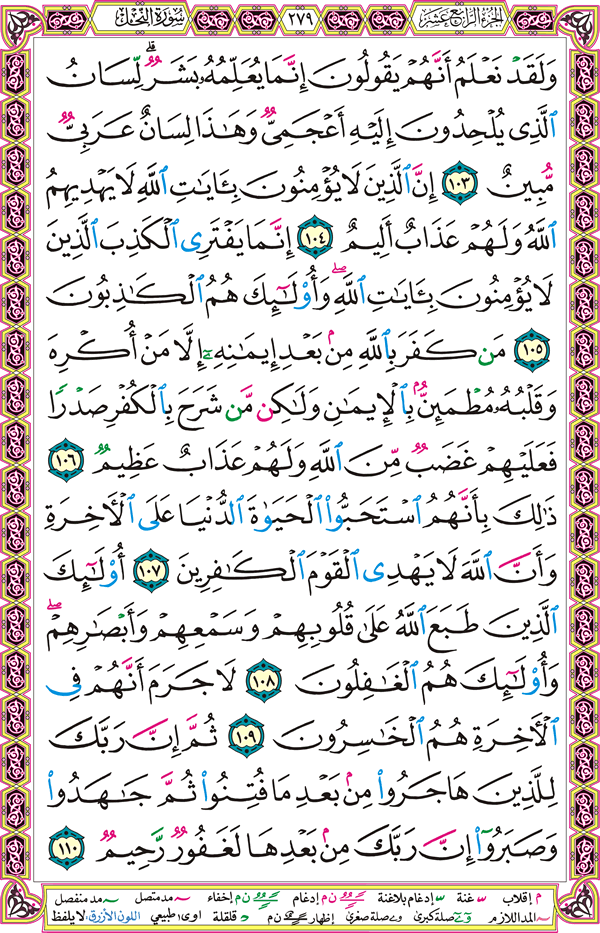 الجزء الرابع عشر ٢٧٩ سورة النحل
وَلَقَدْ نَعْلَمُ أَنَّهُمْ يَقُولُونَ إِنَّمَا يُعَلِّمُهُۥ بَشَرٌ ۗ لِّسَانُ
ٱلَّذِى يُلْحِدُونَ إِلَيْهِ أَعْجَمِىٌّ وَهَـٰذَا لِسَانٌ عَرَبِىٌّ
مُّبِينٌ ١٠٣ إِنَّ ٱلَّذِينَ لَا يُؤْمِنُونَ بِـَٔايَـٰتِ ٱللَّهِ لَا يَهْدِيهِمُ
ٱللَّهُ وَلَهُمْ عَذَابٌ أَلِيمٌ ١٠٤ إِنَّمَا يَفْتَرِى ٱلْكَذِبَ ٱلَّذِينَ
لَا يُؤْمِنُونَ بِـَٔايَـٰتِ ٱللَّهِ ۖ وَأُو۟لَـٰٓئِكَ هُمُ ٱلْكَـٰذِبُونَ
١٠٥ مَن كَفَرَ بِٱللَّهِ مِنۢ بَعْدِ إِيمَـٰنِهِۦٓ إِلَّا مَنْ أُكْرِهَ
وَقَلْبُهُۥ مُطْمَئِنٌّۢ بِٱلْإِيمَـٰنِ وَلَـٰكِن مَّن شَرَحَ بِٱلْكُفْرِ صَدْرًا
فَعَلَيْهِمْ غَضَبٌ مِّنَ ٱللَّهِ وَلَهُمْ عَذَابٌ عَظِيمٌ ١٠٦
ذَٰلِكَ بِأَنَّهُمُ ٱسْتَحَبُّوا۟ ٱلْحَيَوٰةَ ٱلدُّنْيَا عَلَى ٱلْـَٔاخِرَةِ
وَأَنَّ ٱللَّهَ لَا يَهْدِى ٱلْقَوْمَ ٱلْكَـٰفِرِينَ ١٠٧ أُو۟لَـٰٓئِكَ
ٱلَّذِينَ طَبَعَ ٱللَّهُ عَلَىٰ قُلُوبِهِمْ وَسَمْعِهِمْ وَأَبْصَـٰرِهِمْ ۖ
وَأُو۟لَـٰٓئِكَ هُمُ ٱلْغَـٰفِلُونَ ١٠٨ لَا جَرَمَ أَنَّهُمْ فِى
ٱلْـَٔاخِرَةِ هُمُ ٱلْخَـٰسِرُونَ ١٠٩ ثُمَّ إِنَّ رَبَّكَ
لِلَّذِينَ هَاجَرُوا۟ مِنۢ بَعْدِ مَا فُتِنُوا۟ ثُمَّ جَـٰهَدُوا۟
وَصَبَرُوٓا۟ إِنَّ رَبَّكَ مِنۢ بَعْدِهَا لَغَفُورٌ رَّحِيمٌ ١١٠
م إقلاب غنة إدغام بلاغنة ن م إدغام ن م إخفاء مد متصل مد منفصل
المد اللازم صلة كبرى صلة صغرى إظهار ن م قلقلة اوى طبيعي اللون الأزرق: لا يلفظ